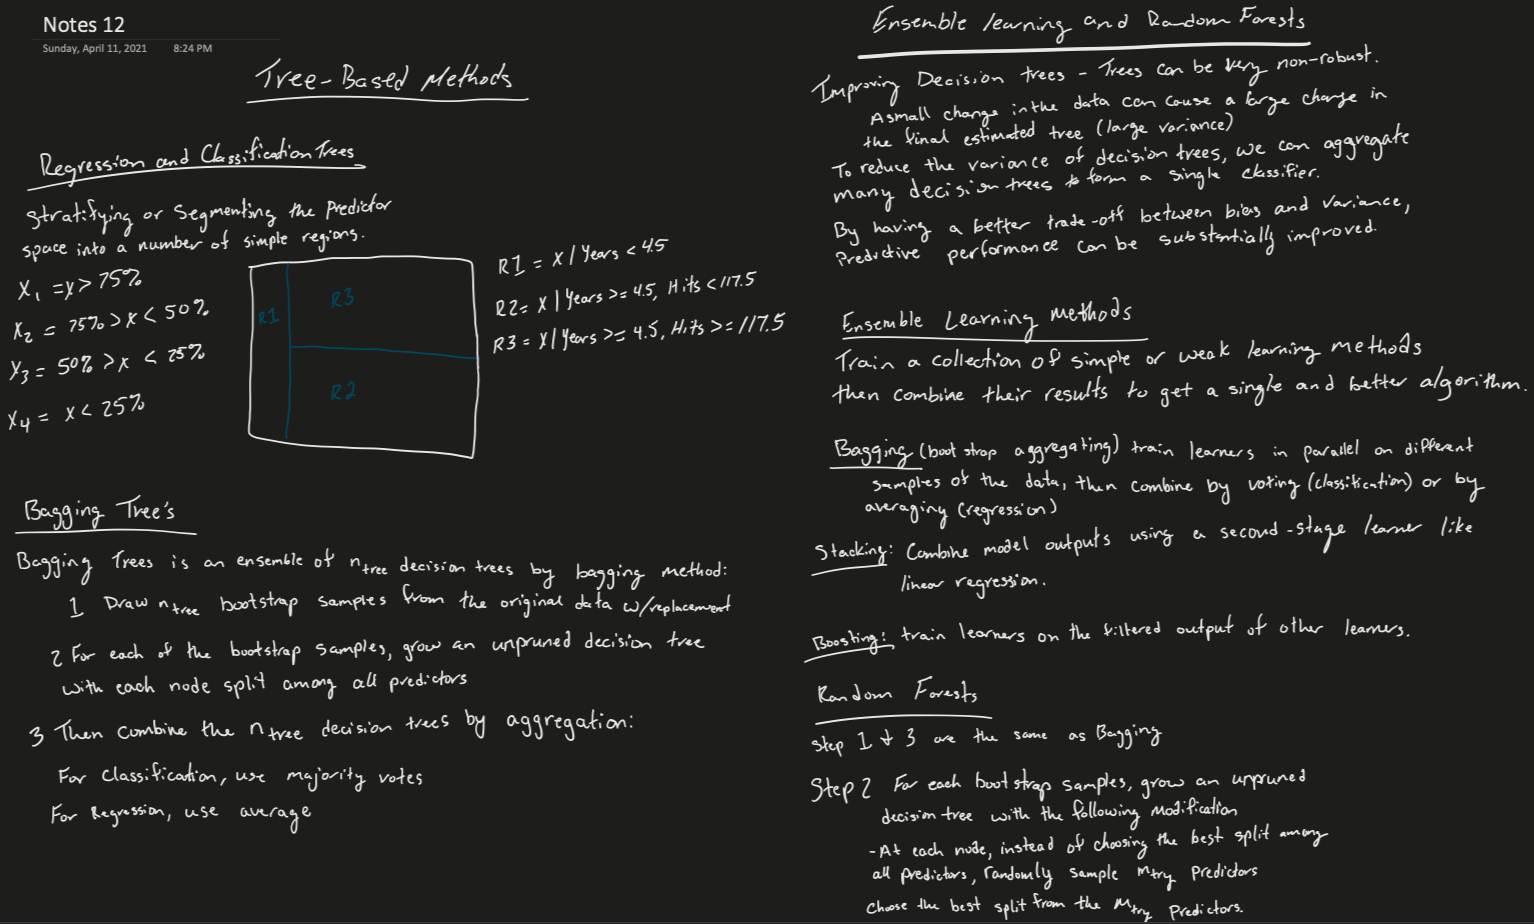 Notes 12
Sunday, April 11, 2021 8:24 PM
Tree-Based Methods
Regression and Classification Trees
Stratifying or Segmenting the Predictor
space into a number of simple regions.
X₁ = x > 75%
X₂ = 75% > x < 50%
X₃ = 50% > x < 25%
X₄ = x < 25%
R1
R3
R2
R1 = X | Years < 4.5
R2 = X | Years >= 4.5, Hits < 117.5
R3 = X | Years >= 4.5, Hits >= 117.5
Bagging Tree's
Bagging Trees is an ensemble of n_tree decision trees by bagging method:
1 Draw n_tree bootstrap samples from the original data w/replacement
2 For each of the bootstrap samples, grow an unpruned decision tree
with each node split among all predictors
3 Then combine the n_tree decision trees by aggregation:
For Classification, use majority votes
For Regression, use average
Ensemble learning and Random Forests
Improving Decision trees - Trees can be very non-robust.
A small change in the data can cause a large change in
the final estimated tree (large variance)
To reduce the variance of decision trees, we can aggregate
many decision trees to form a single classifier.
By having a better trade-off between bias and variance,
Predictive performance can be substantially improved.
Ensemble Learning Methods
Train a collection of simple or weak learning methods
then combine their results to get a single and better algorithm.
Bagging (bootstrap aggregating) train learners in parallel on different
samples of the data, then combine by voting (classification) or by
averaging (regression)
Stacking: Combine model outputs using a second-stage learner like
linear regression.
Boosting: train learners on the filtered output of other learners.
Random Forests
Step 1 & 3 are the same as Bagging
Step 2 For each bootstrap samples, grow an unpruned
decision tree with the following modification
- At each node, instead of choosing the best split among
all predictors, randomly sample m_try Predictors
Choose the best split from the m_try Predictors.